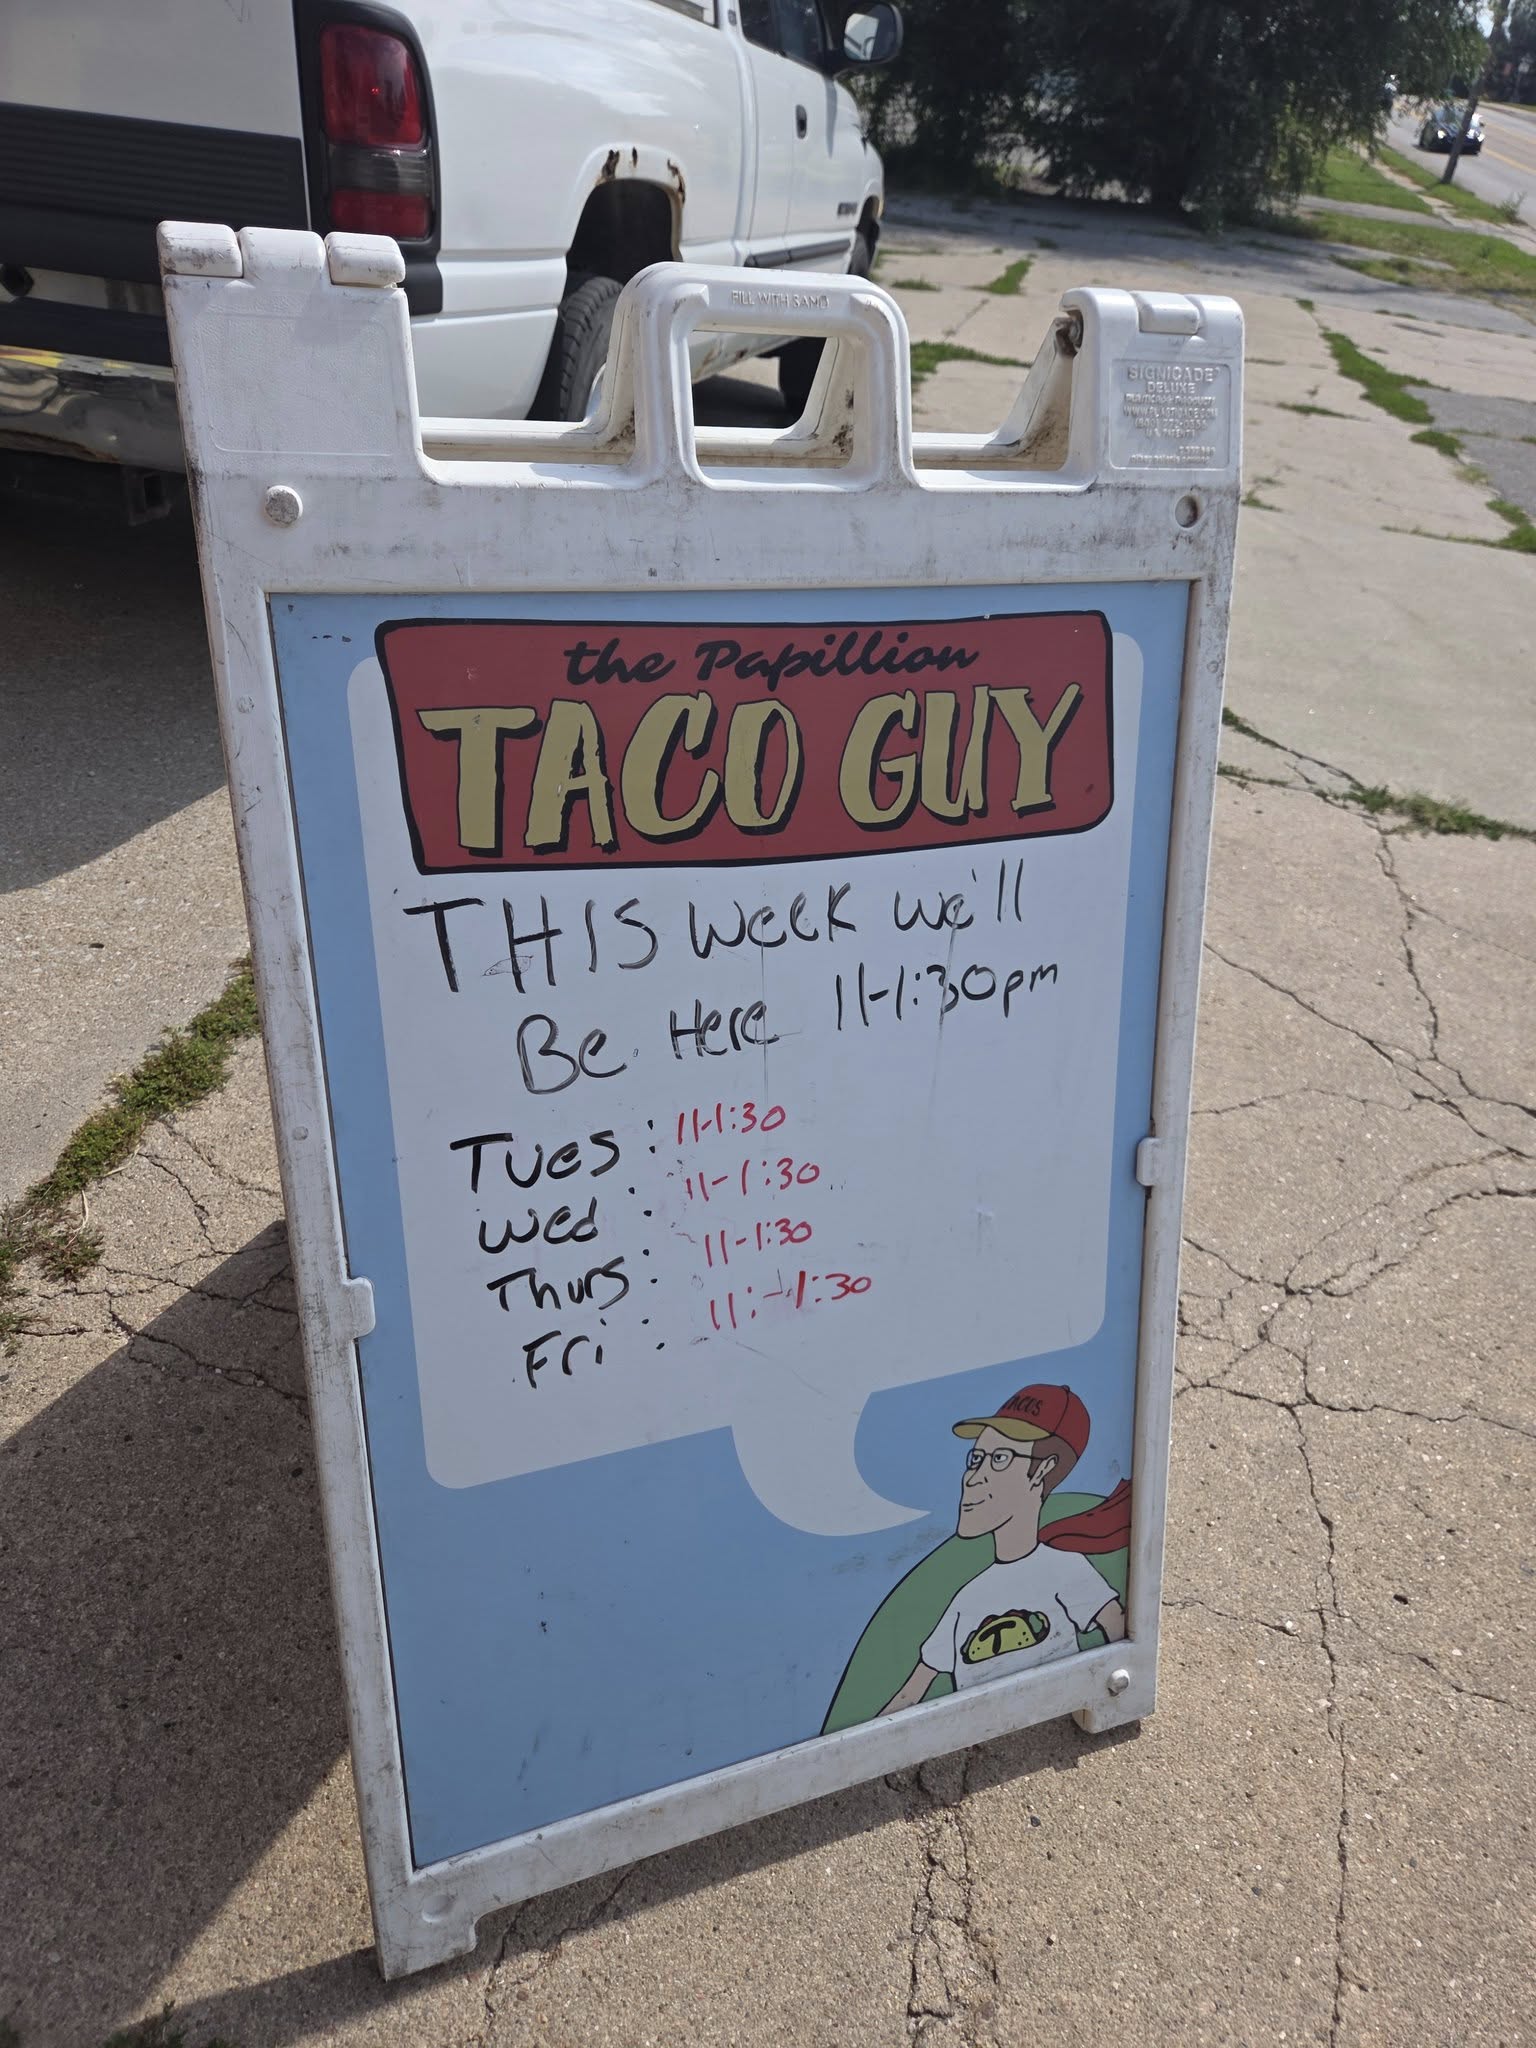 FILL WITH SAND
SIGNICADE
DELUXE
the Papillion
TACO GUY
THIS week we'll
Be Here 11-1:30pm
Tues : 11-1:30
Wed : 11-1:30
Thurs : 11-1:30
Fri : 11:-1:30
TACOS
T